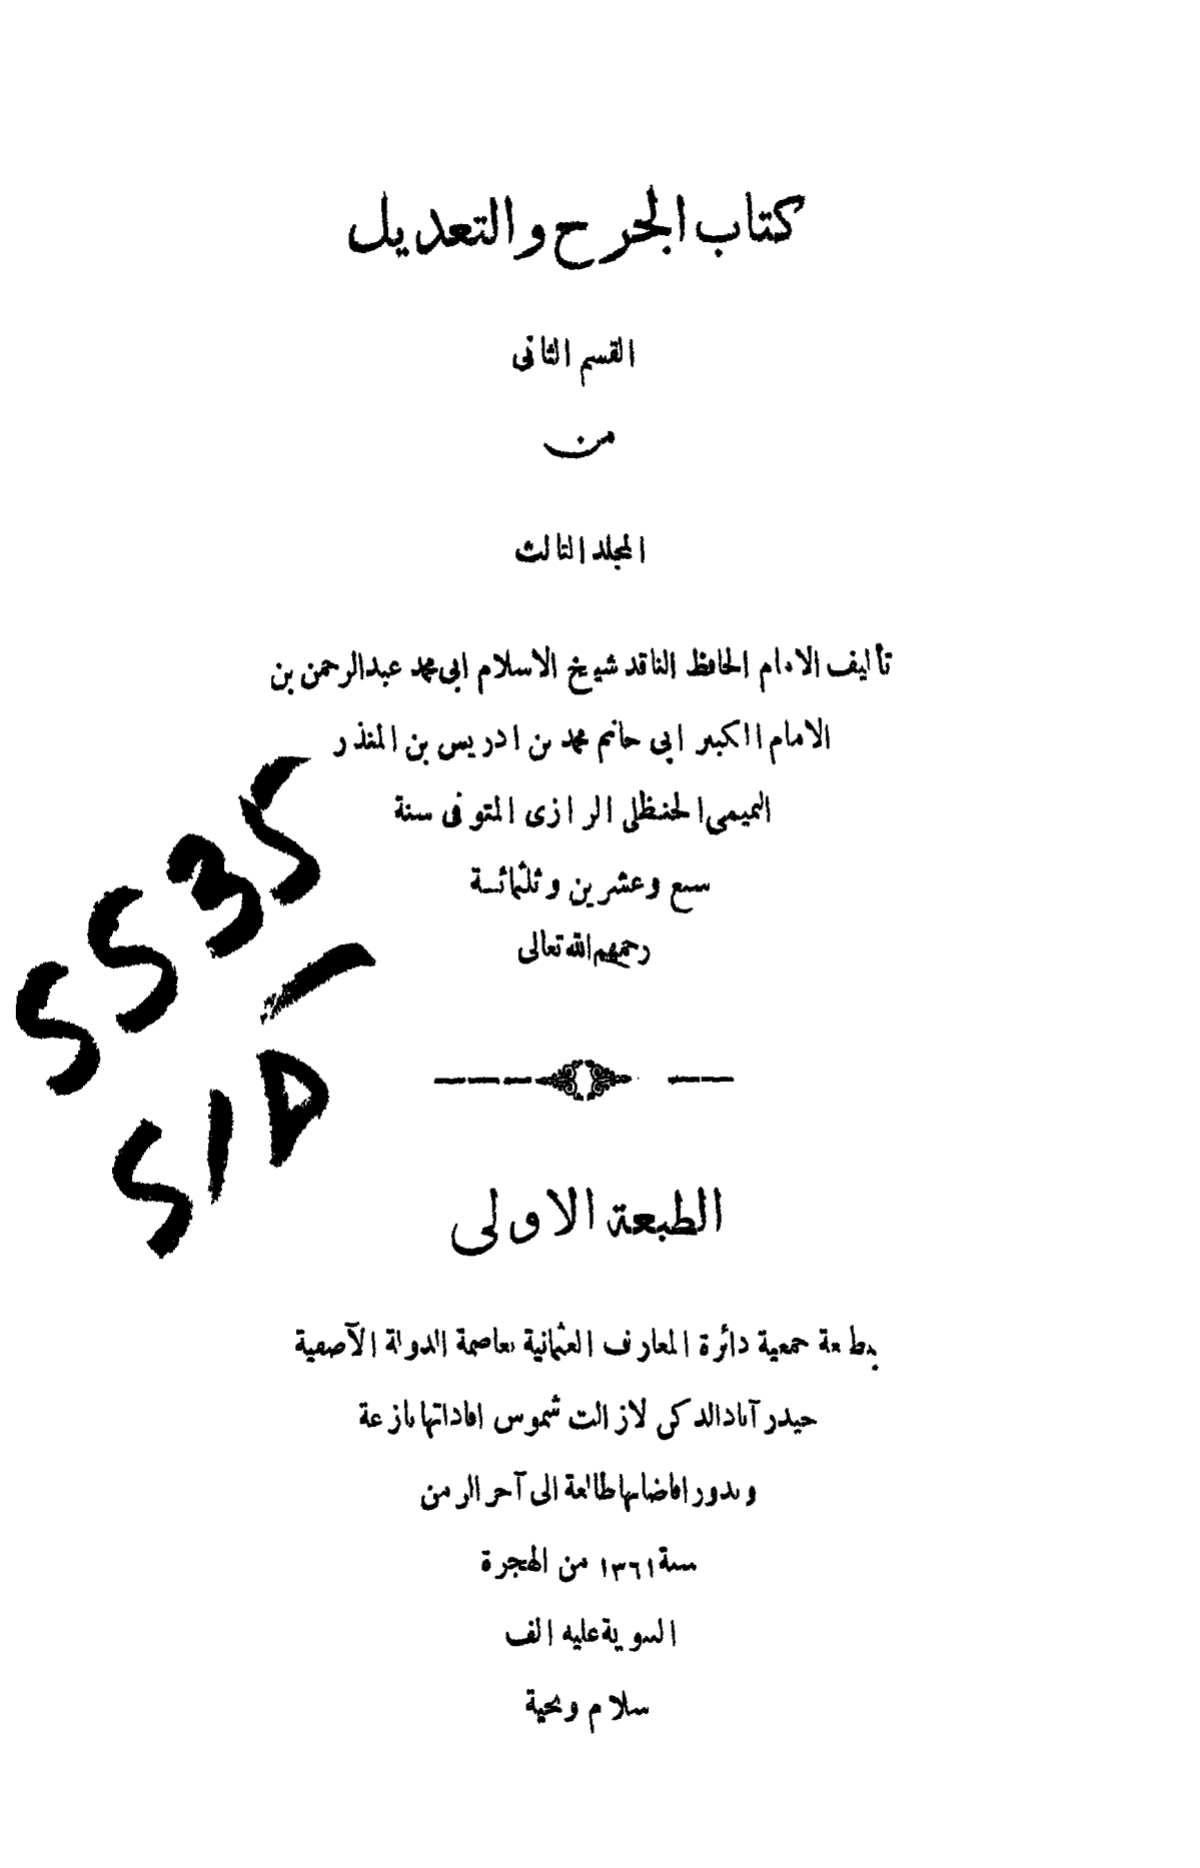 كتاب الجرح والتعديل
القسم الثانى
من
المجلد الثالث
تأليف الامام الحافظ الناقد شيخ الاسلام ابى محمد عبدالرحمن بن
الامام الكبير ابى حاتم محمد بن ادريس بن المنذر
التميمى الحنظلى الرازى المتوفى سنة
سبع وعشرين وثلثمائة
رحمهم الله تعالى
5535
-
SID
الطبعة الاولى
بمطبعة جمعية دائرة المعارف العثمانية بعاصمة الدولة الآصفية
حيدرآباد الدكن لازالت شموس افاداتها بازغة
وبدور افاضاتها طالعة الى آخر الزمن
سنة ١٣٦١ من الهجرة
النبوية عليه الف
سلام وتحية